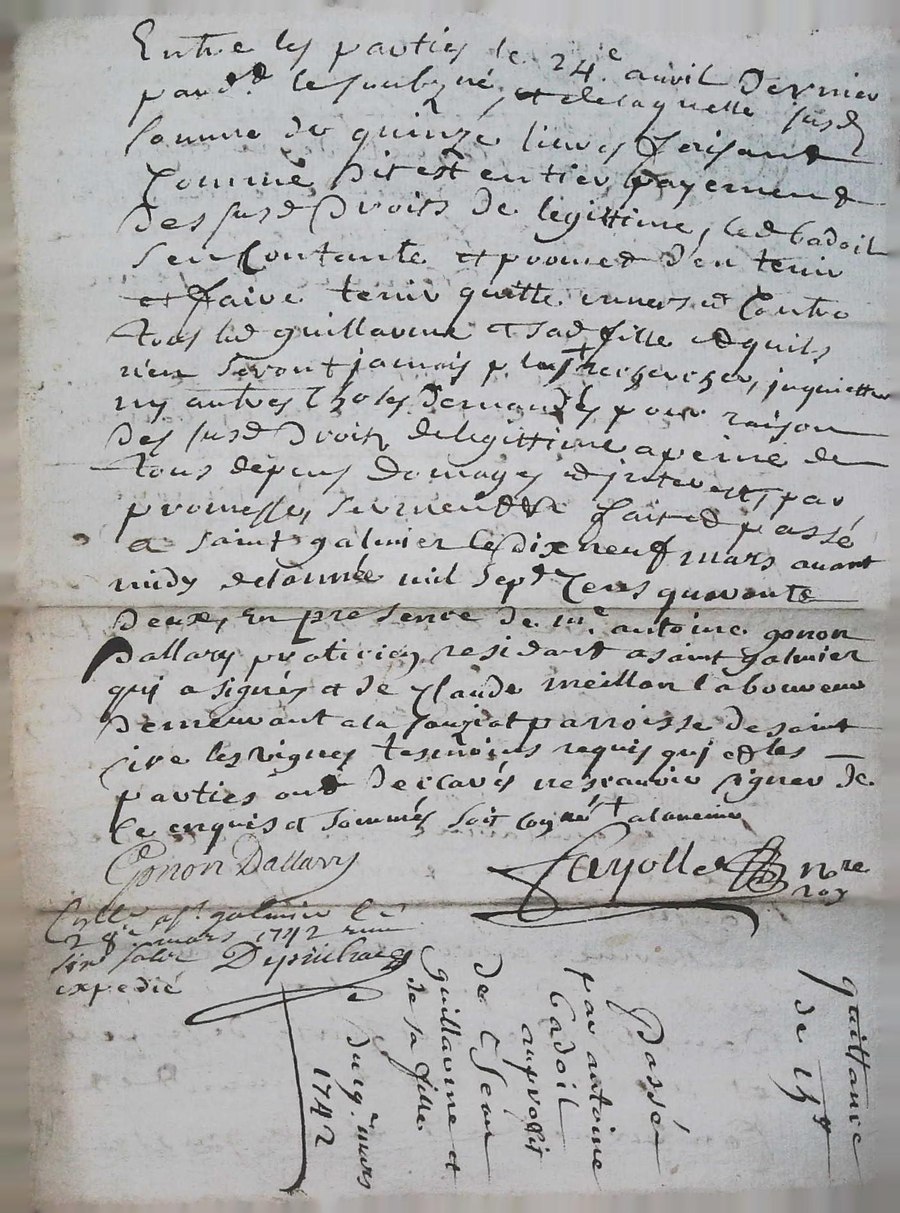 Entre les parties le 24e. avril dernier
par dt. le soubzné, et de laquelle susd
somme de quinze livres faisant
comme dit est entier payement
des susd droits de legittime, led badoil
s'en contante et promet d'en tenir
et faire tenir quitte envers et contre
tous led guillarme et sad fille et quils
n'en seront jamais plus recherchez, inquiettez
ny autres choses demandés pour raison
des susd droits de legittime a peine de
tous depens domages et interests, par
promesses, serment &c fait et passé
a saint galmier le dixneuf mars avant
midy de l'année mil sept cens quarante
deux, en presence de me. antoine gonon
Dallary praticien residant a saint galmier
qui a signés et de Claude meillon laboureur
demeurant a la parroisse de saint
cire les vignes tesmoins requis qui et les
parties ont declarés ne scavoir signer de
ce enquis et sommés soit
Gonon Dallary
Fayolle nre
roy
Cllé a st. galmier le
28e. mars 1742
expedié
quittance
de 15lt
Passé
par antoine
badoil
au proffit
de Jean
guillarme et
de sa fille
du 19e mars
1742